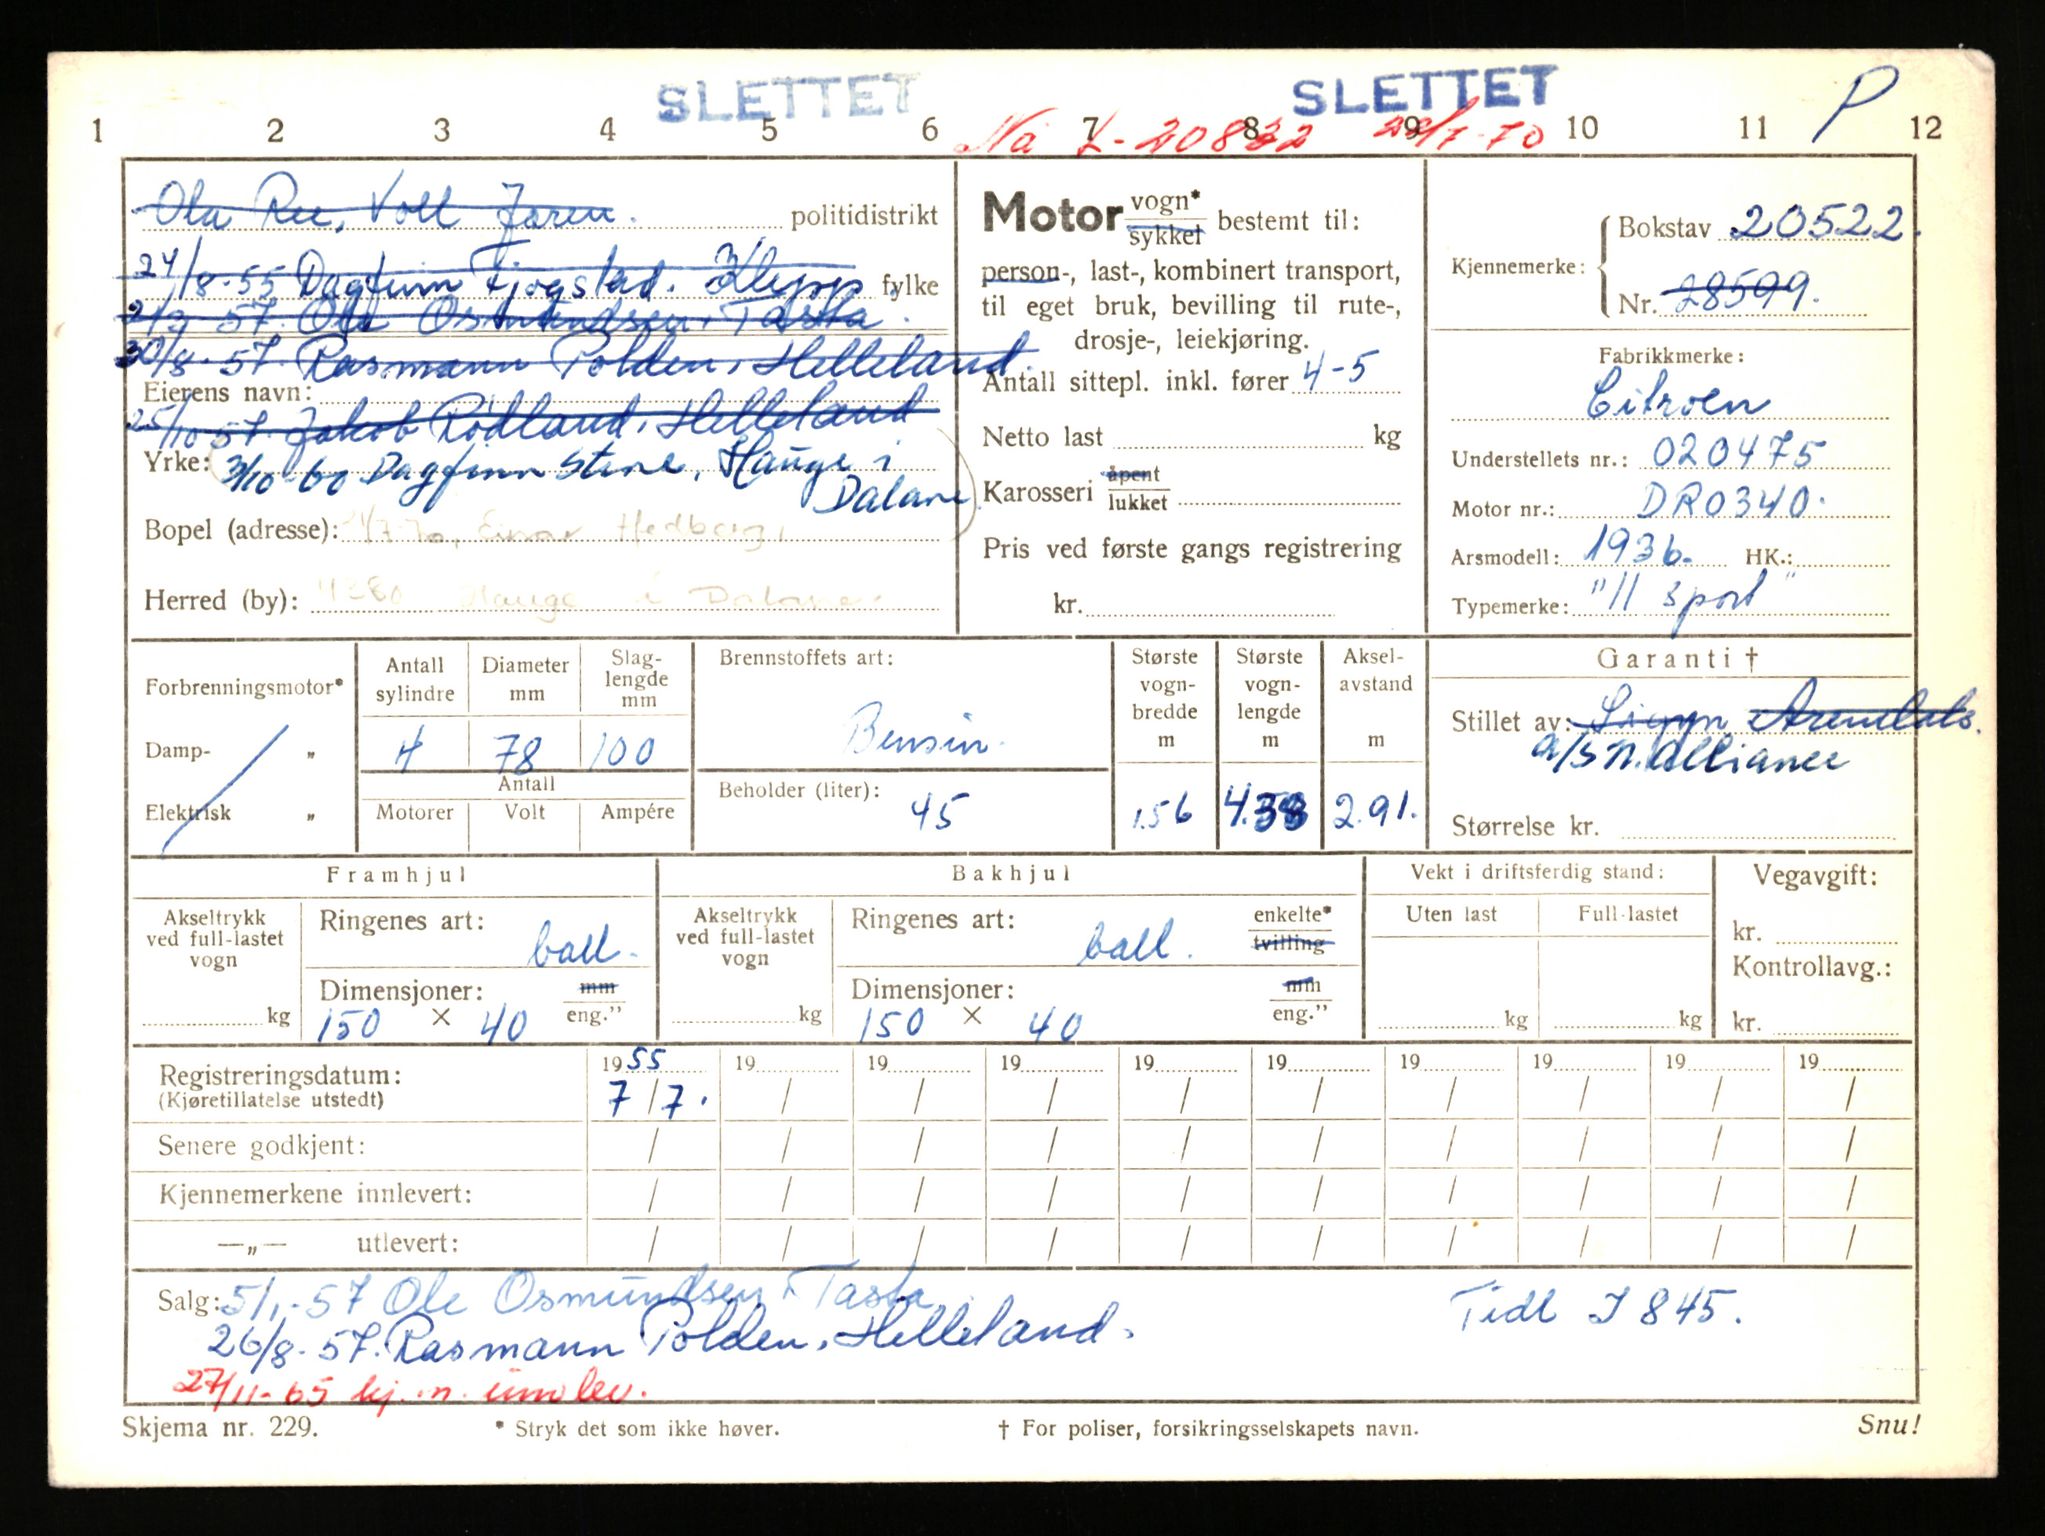 SLETTET SLETTET P
1 2 3 4 5 6 7 8 9 10 11 12
Nå 20832 -70
Ola Ree, Voll Jæren. politidistrikt
24/8-55 Dagfinn Fjogstad. Klepp fylke
57. Ole Osmundsen, Tasta.
30/8-57. Rasmann Polden, Helleland.
Eierens navn:
25/10 57. Jakob Rödland, Helleland
Yrke: 3/10-60 Dagfinn Stene, Hauge i
Dalane.
Bopel (adresse): Einar Hedberg,
Herred (by): 4380 Hauge i Dalane.
Motor vogn* sykkel bestemt til:
person-, last-, kombinert transport,
til eget bruk, bevilling til rute-,
drosje-, leiekjøring.
Antall sittepl. inkl. fører 4-5
Netto last kg
Karosseri åpent lukket
Pris ved første gangs registrering
kr.
Kjennemerke: Bokstav 20522.
Nr. 28599.
Fabrikkmerke:
Citroen
Understellets nr.: 020475
Motor nr.: DR0340.
Arsmodell: 1936. HK.:
Typemerke: "11 sport"
Forbrenningsmotor*
Damp- „
Elektrisk „
Antall sylindre Diameter mm Slaglengde mm
4 78 100
Antall
Motorer Volt Ampére
Brennstoffets art:
Bensin.
Beholder (liter):
45
Største vogn-bredde m Største vogn-lengde m Aksel-avstand m
1.56 4.38 2.91.
Garanti †
Stillet av:
a/s N. Alliance
Størrelse kr.
Framhjul Bakhjul Vekt i driftsferdig stand: Vegavgift:
Akseltrykk ved full-lastet vogn kg
Ringenes art: ball.
Dimensjoner: mm eng.”
150 × 40
Akseltrykk ved full-lastet vogn kg
Ringenes art: ball. enkelte* tvilling
Dimensjoner: mm eng.”
150 × 40
Uten last Full-lastet
kg kg
kr.
Kontrollavg.:
kr.
Registreringsdatum: 1955 19 19 19 19 19 19 19 19 19
(Kjøretillatelse utstedt) 7/7. / / / / / / / / /
Senere godkjent: / / / / / / / / / /
Kjennemerkene innlevert: / / / / / / / / / /
—„— utlevert: / / / / / / / / / /
Salg: 5/1-57 Ole Osmundsen, Tasta
26/8-57. Rasmann Polden, Helleland.
Tidl I 845.
27/11-65 kj. n. innlev.
Skjema nr. 229. * Stryk det som ikke høver. † For poliser, forsikringsselskapets navn. Snu!